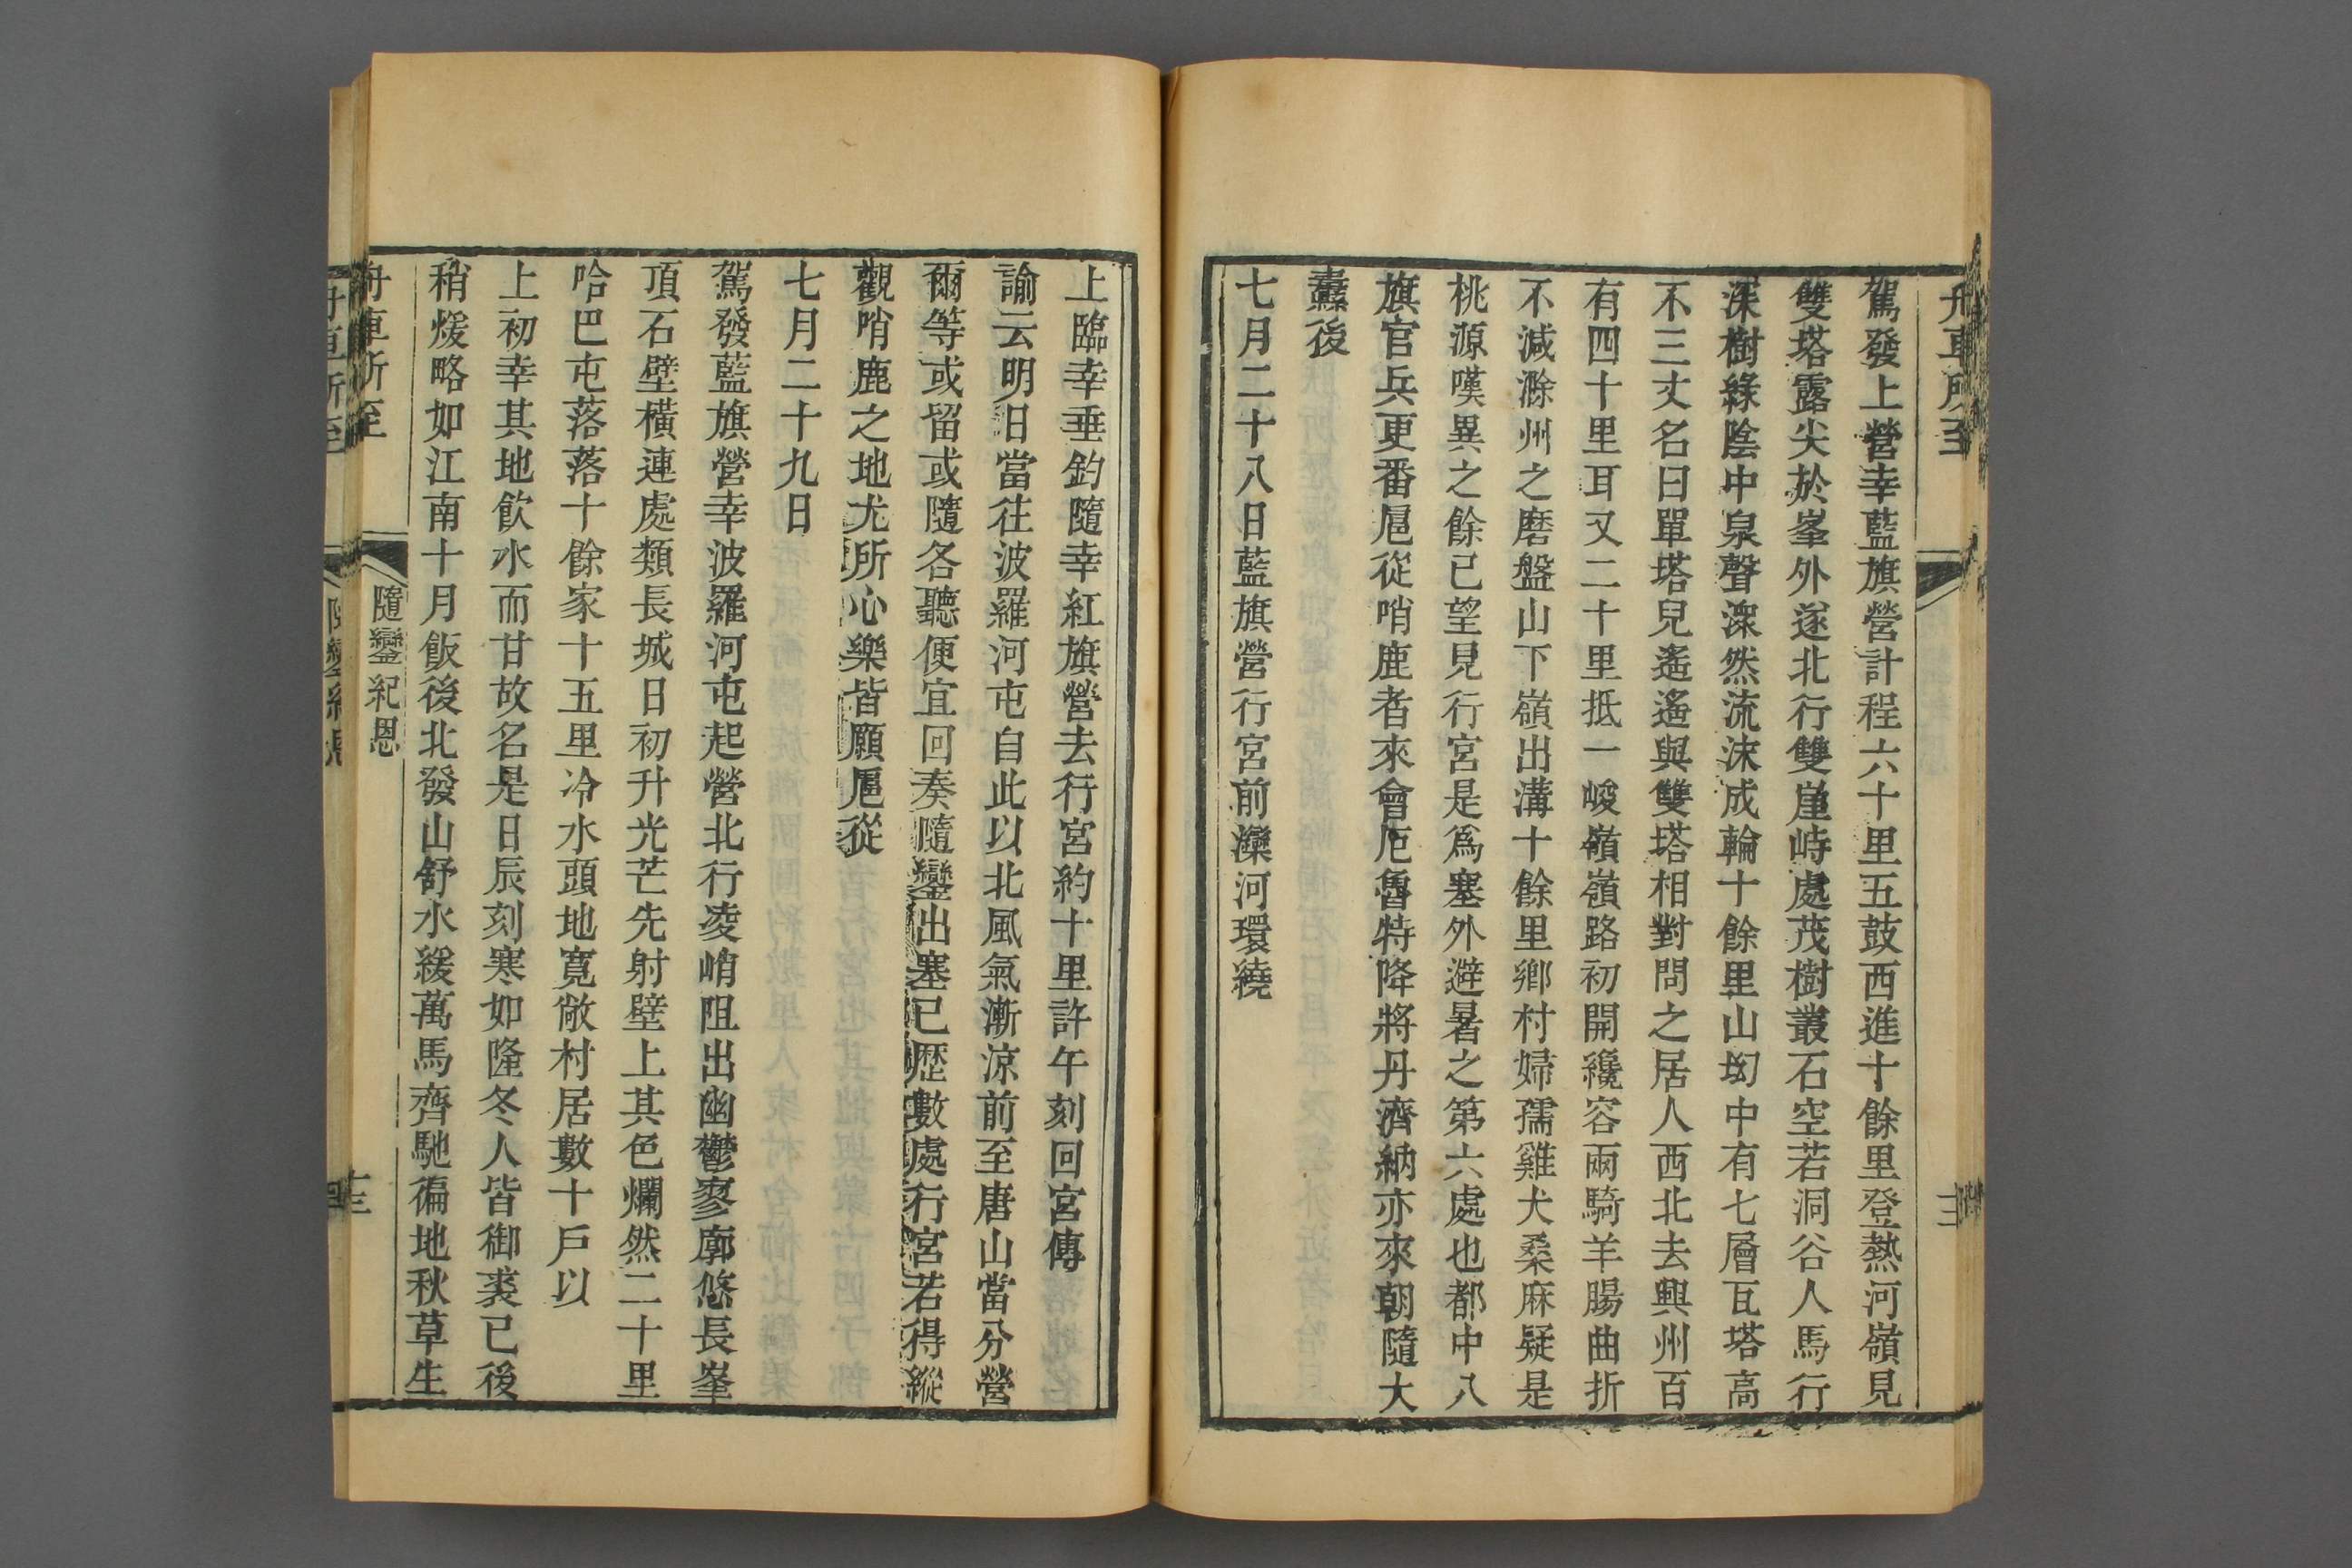 舟車所至
十二
駕發上營幸藍旗營計程六十里五鼓西進十餘里登熱河嶺見
雙塔露尖於峯外遂北行雙崖峙處茂樹叢石空若洞谷人馬行
深樹綠陰中泉聲潀然流沫成輪十餘里山㘭中有七層瓦塔高
不三丈名曰單塔兒遙遙與雙塔相對問之居人西北去興州百
有四十里耳又二十里抵一峻嶺嶺路初開纔容兩騎羊腸曲折
不減滁州之磨盤山下嶺出溝十餘里鄉村婦孺雞犬桑麻疑是
桃源嘆異之餘已望見行宮是爲塞外避暑之第六處也都中八
旗官兵更番扈從哨鹿者來會厄魯特降將丹濟納亦來朝隨大
纛後
七月二十八日藍旗營行宮前灤河環繞
上臨幸垂釣隨幸紅旗營去行宮約十里許午刻回宮傳
諭云明日當往波羅河屯自此以北風氣漸涼前至唐山當分營
爾等或留或隨各聽便宜回奏隨鑾出塞已歷數處行宮若得縱
觀哨鹿之地尤所心樂皆願扈從
七月二十九日
駕發藍旗營幸波羅河屯起營北行凌峭阻出幽鬱寥廓悠長峯
頂石壁橫連處類長城日初升光芒先射壁上其色爛然二十里
哈巴屯落落十餘家十五里冷水頭地寬敞村居數十戶以
上初幸其地飲水而甘故名是日辰刻寒如隆冬人皆御裘已後
稍煖略如江南十月飯後北發山舒水緩萬馬齊馳徧地秋草生
舟車所至
隨鑾紀恩
十三
舟車所至
隨鑾紀恩